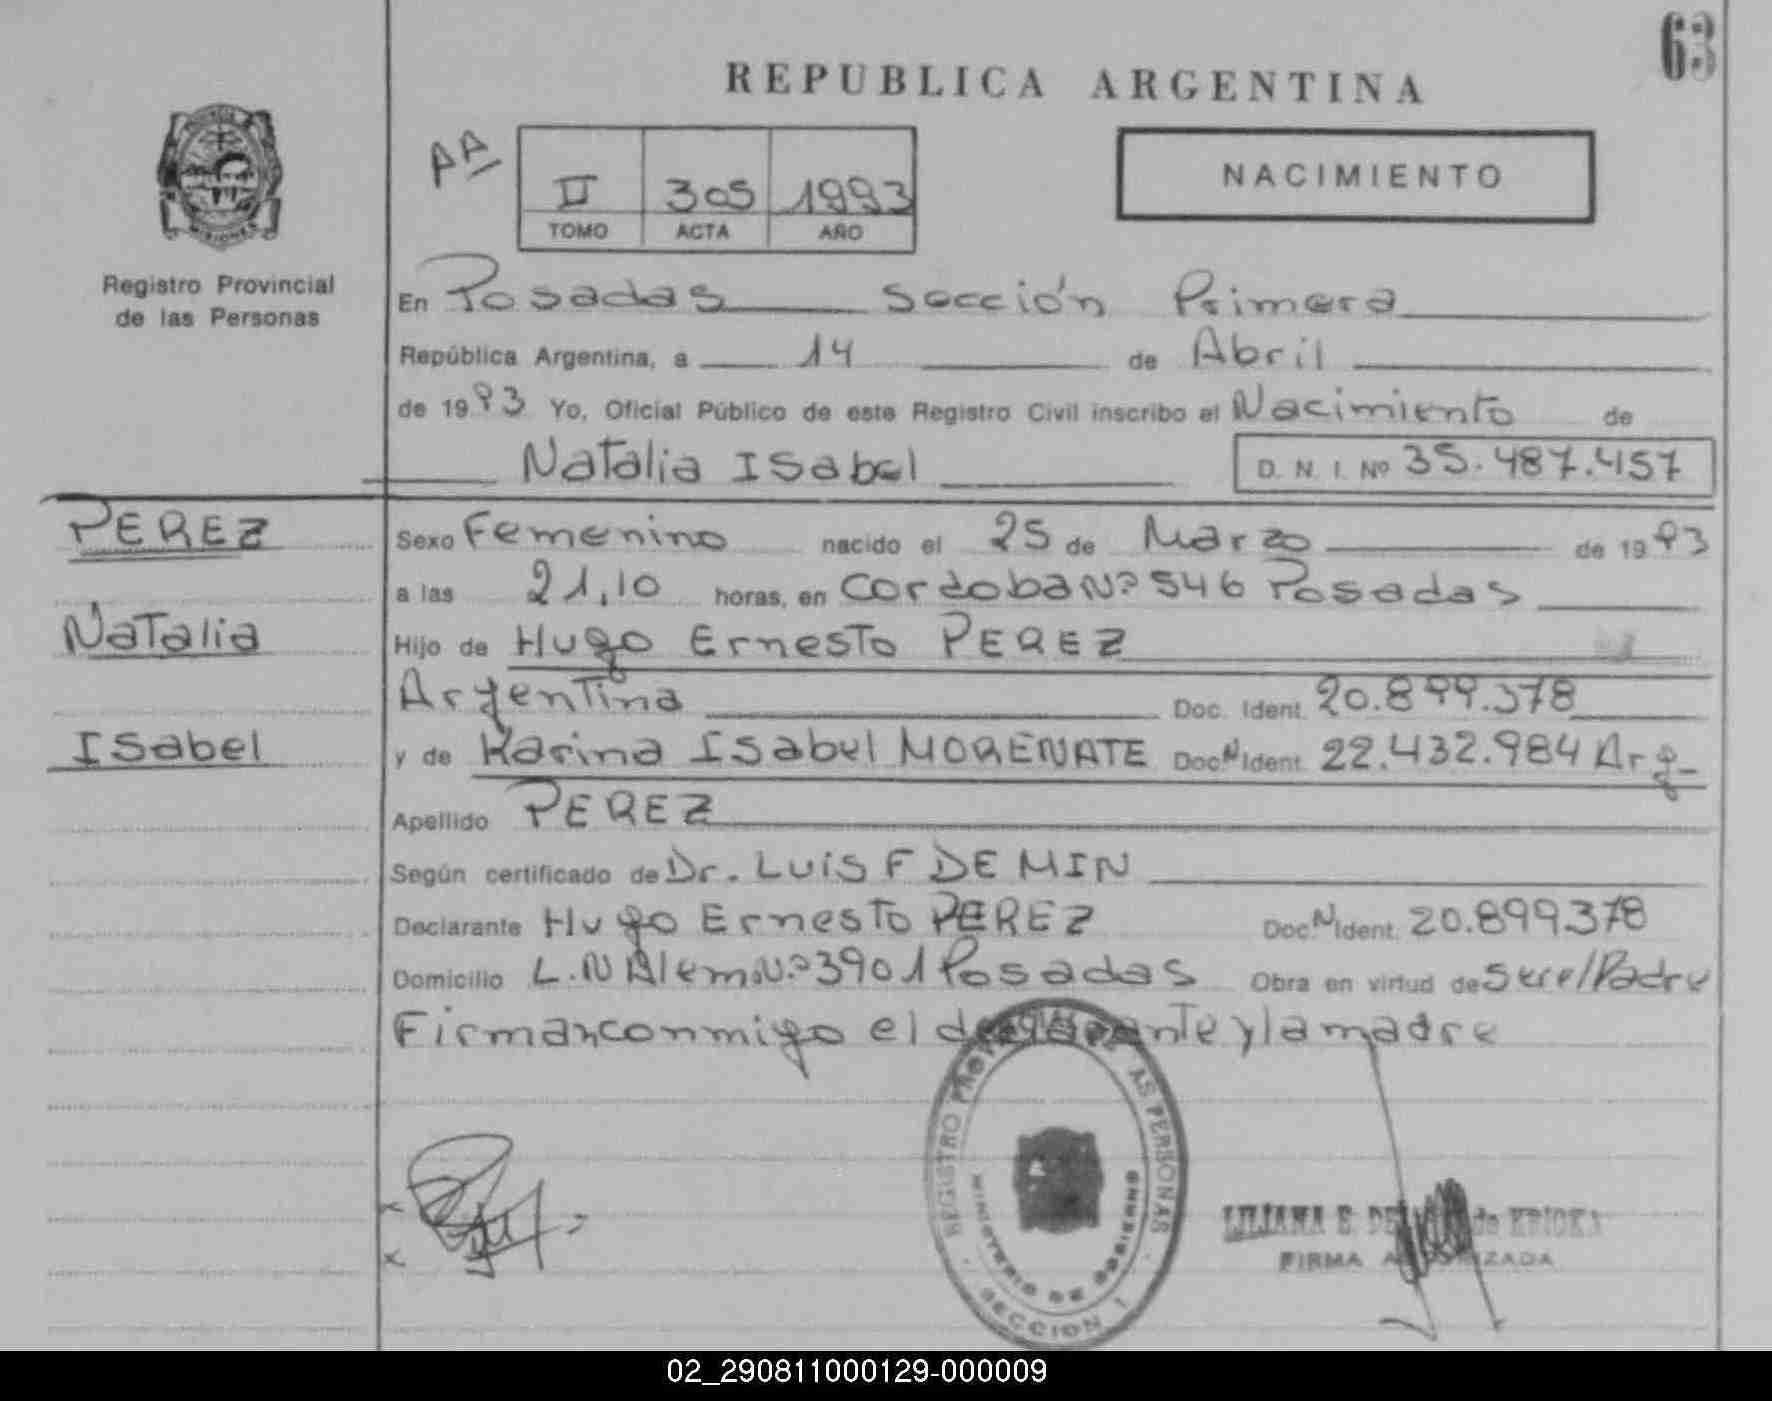 63
REPUBLICA ARGENTINA
AA
II 305 1993
TOMO ACTA AÑO
NACIMIENTO
MISIONES
Registro Provincial
de las Personas
En Posadas Sección Primera
República Argentina, a 14 de Abril
de 1993 Yo, Oficial Público de este Registro Civil inscribo el Nacimiento de
Natalia Isabel D. N. I. Nº 35.487.457
PEREZ
Natalia
Isabel
Sexo Femenino nacido el 25 de Marzo de 1993
a las 21,10 horas, en Cordoba Nº 546 Posadas
Hijo de Hugo Ernesto PEREZ
Argentina Doc. Ident. 20.899.378
y de Karina Isabel MORENATE Doc. N Ident. 22.432.984 Arg
Apellido PEREZ
Según certificado de Dr. LUIS F DE MIN
Declarante Hugo Ernesto PEREZ Doc. N Ident. 20.899.378
Domicilio L.N Alem Nº 3901 Posadas Obra en virtud de ser el Padre
Firman conmigo el declarante y la madre
REGISTRO PROVINCIAL DE LAS PERSONAS
MINISTERIO DE GOBIERNO
SECCION 1
LILIANA E. de KRICKA
FIRMA AUTORIZADA
02_290811000129-000009